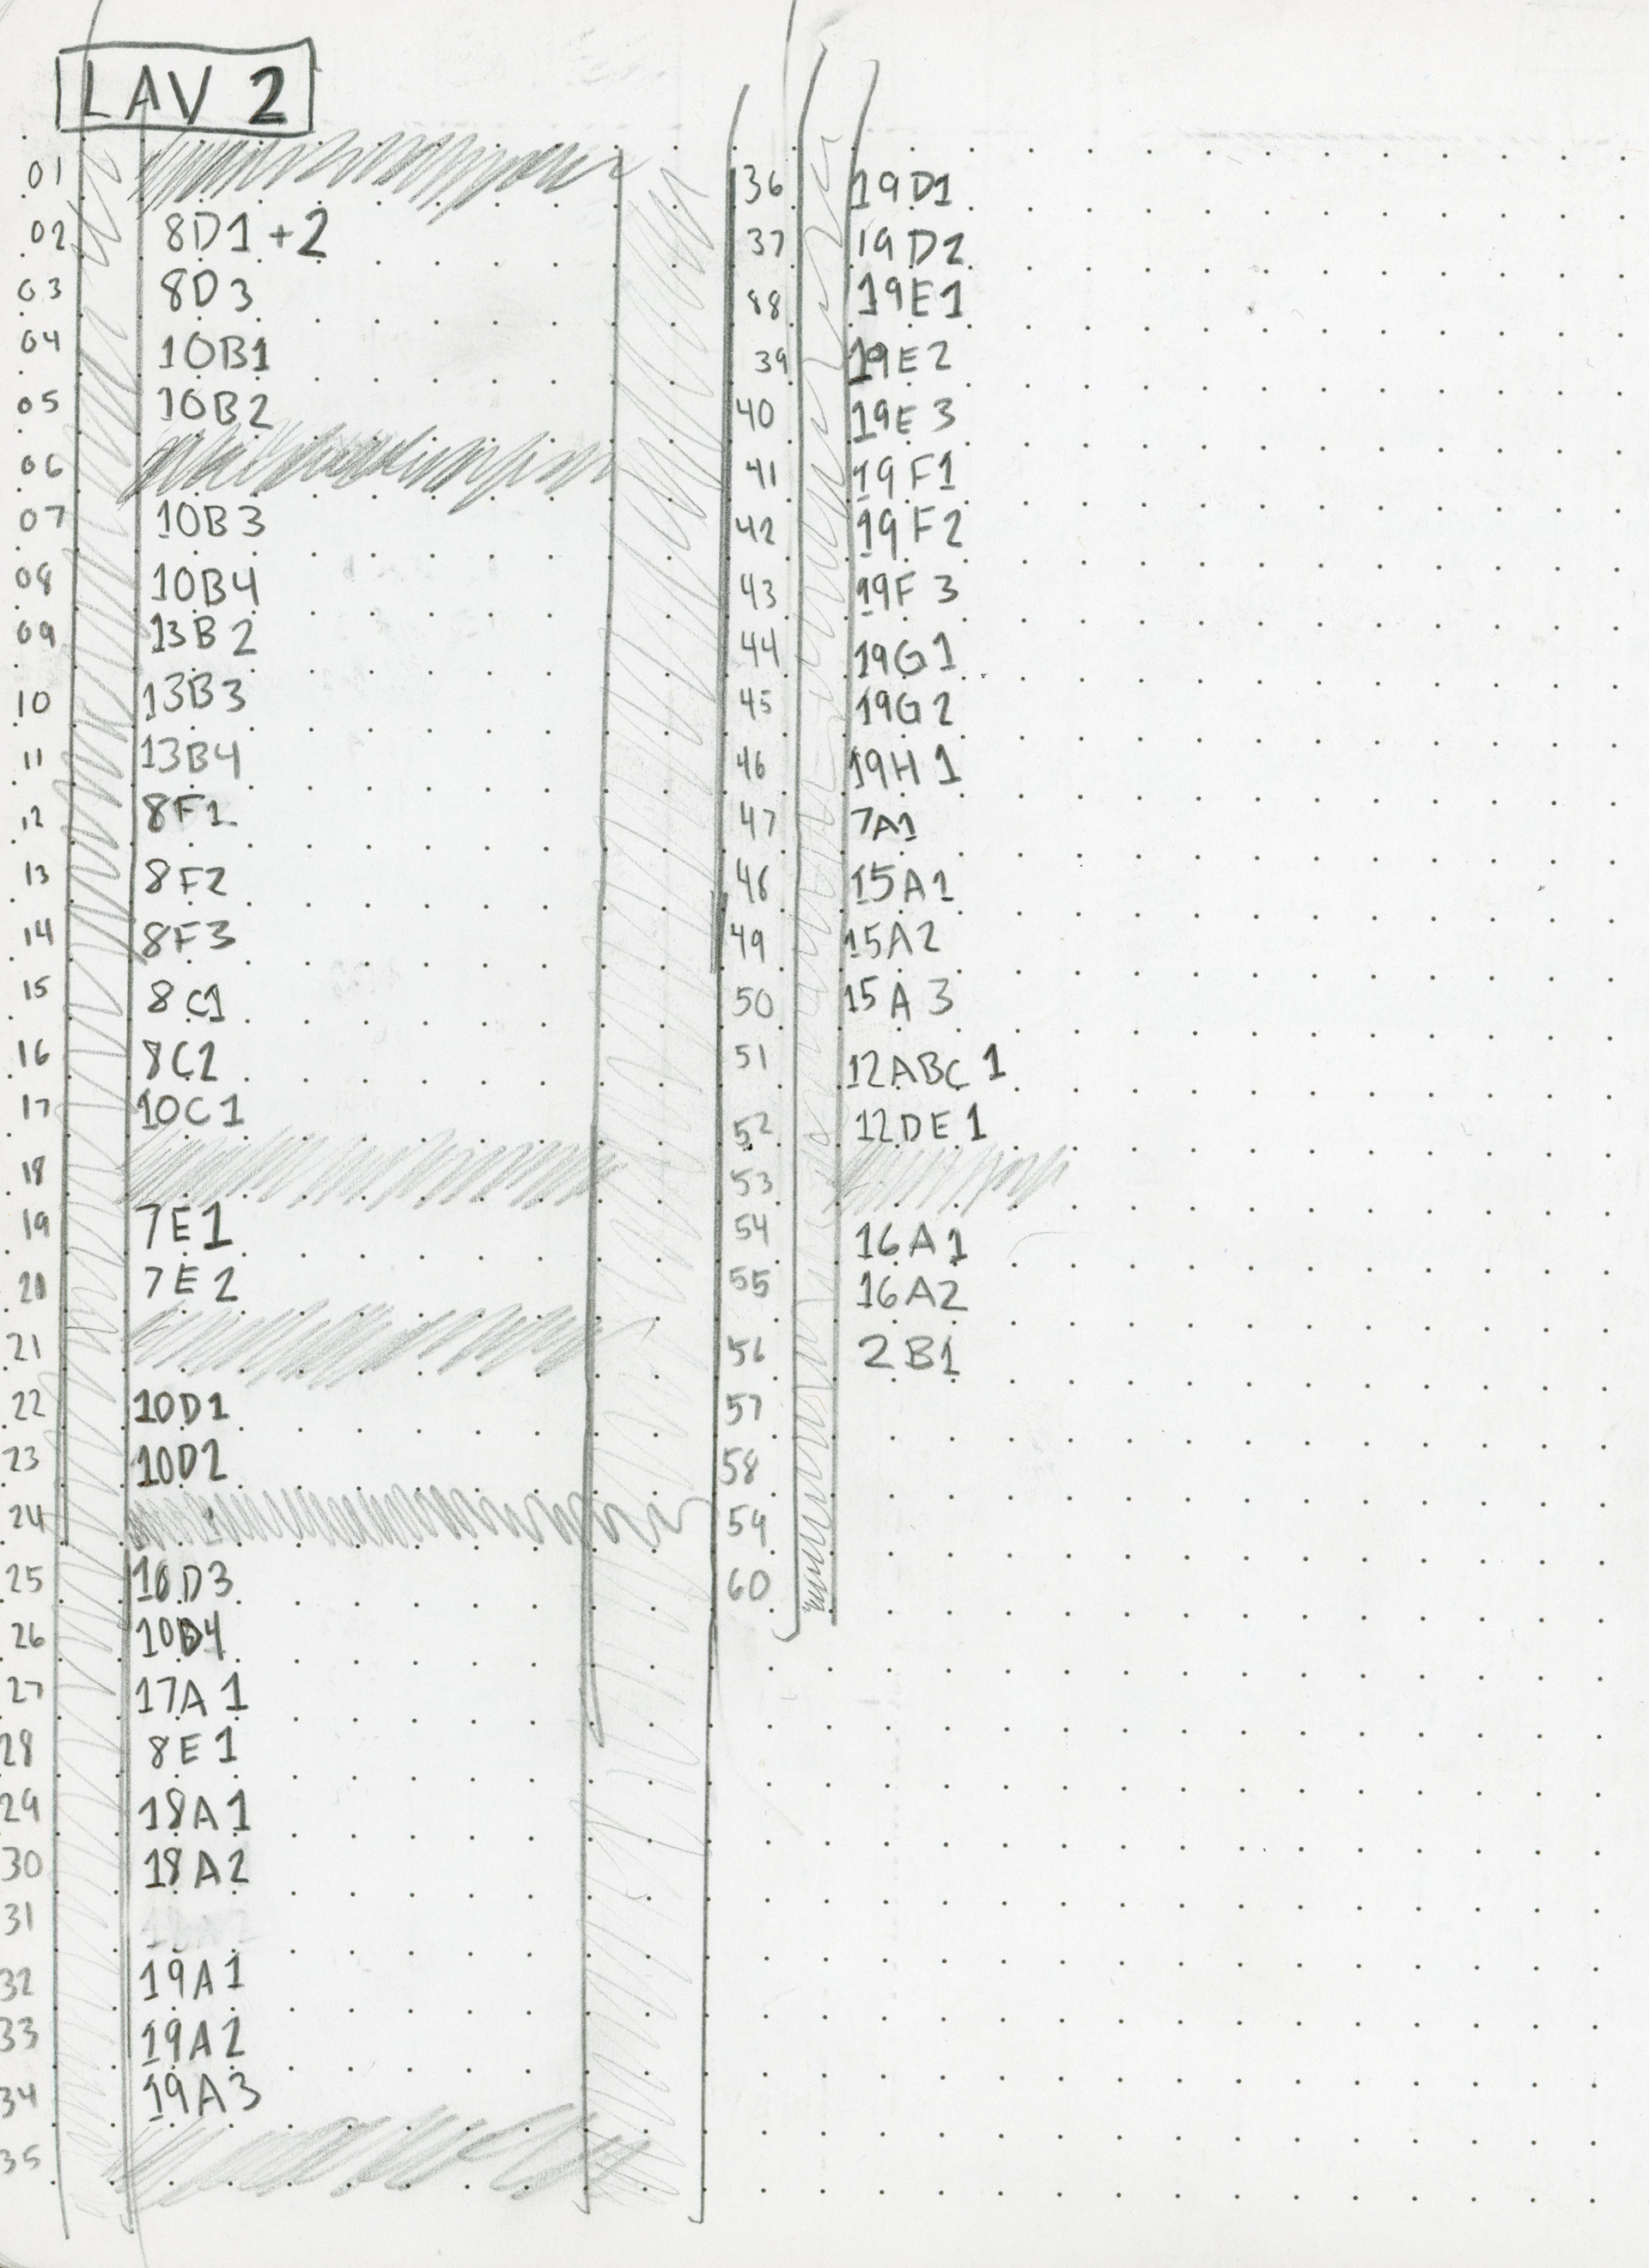 LAV 2
01
02 8D1+2
03 8D3
04 10B1
05 10B2
06
07 10B3
08 10B4
09 13B2
10 13B3
11 13B4
12 8F1
13 8F2
14 8F3
15 8C1
16 8C2
17 10C1
18
19 7E1
20 7E2
21
22 10D1
23 10D2
24
25 10D3
26 10D4
27 17A1
28 8E1
29 18A1
30 18A2
31
32 19A1
33 19A2
34 19A3
35
36 19D1
37 19D2
88 19E1
39 19E2
40 19E3
41 19F1
42 19F2
43 19F3
44 19G1
45 19G2
46 19H1
47 7A1
48 15A1
49 15A2
50 15A3
51 12ABC1
52 12DE1
53
54 16A1
55 16A2
56 2B1
57
58
59
60